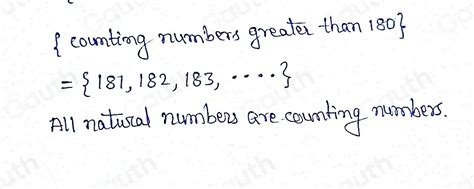 { counting numbers greater than 180}
= {181, 182, 183, ....}
All natural numbers are counting numbers.